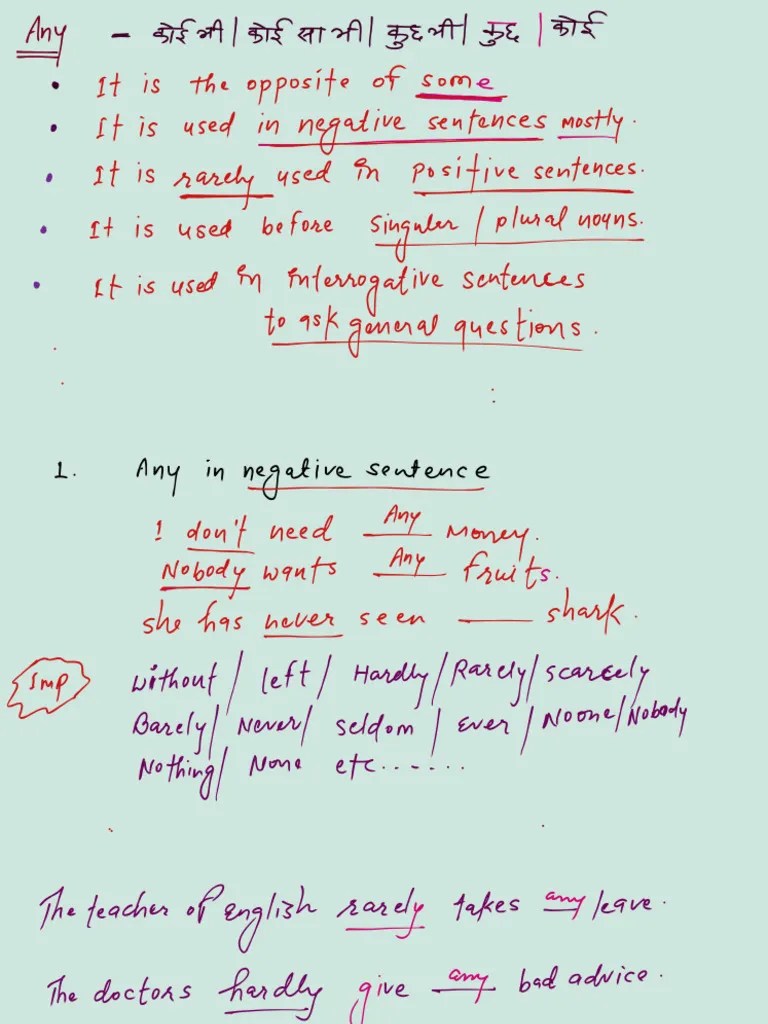 Any - कोई भी | कोई सा भी | कुछ भी | कुछ | कोई
• It is the opposite of some
• It is used in negative sentences mostly.
• It is rarely used in positive sentences.
• It is used before singular / plural nouns.
• It is used in interrogative sentences
to ask general questions.
1. Any in negative sentence
I don't need Any money.
Nobody wants Any fruits.
she has never seen ___ shark.
Imp without / left / Hardly / Rarely / scarcely
Barely / Never / seldom / Ever / Noone / Nobody
Nothing / None etc.......
The teacher of English rarely takes any leave.
The doctors hardly give any bad advice.